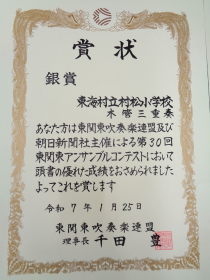 賞状
銀賞
東海村立村松小学校
木管三重奏
あなた方は東関東吹奏楽連盟及び
朝日新聞社主催による第30回
東関東アンサンブルコンテストにおいて
頭書の優れた成績をおさめられました
よってこれを賞します
令和7年1月25日
東関東吹奏楽連盟
理事長 千田 豊